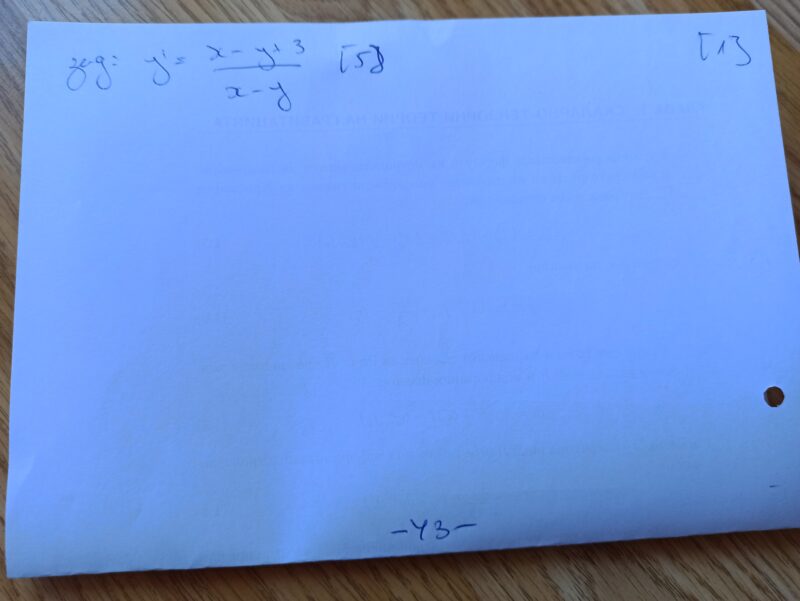 зад: y' = x - y + 3 / x - y [5] [1]
- 43 -